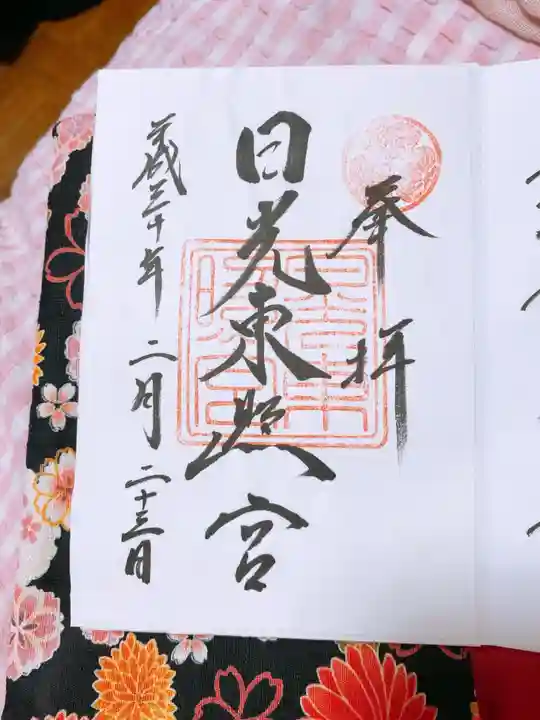 奉拝
日光東照宮
平成三十年 二月 二十三日